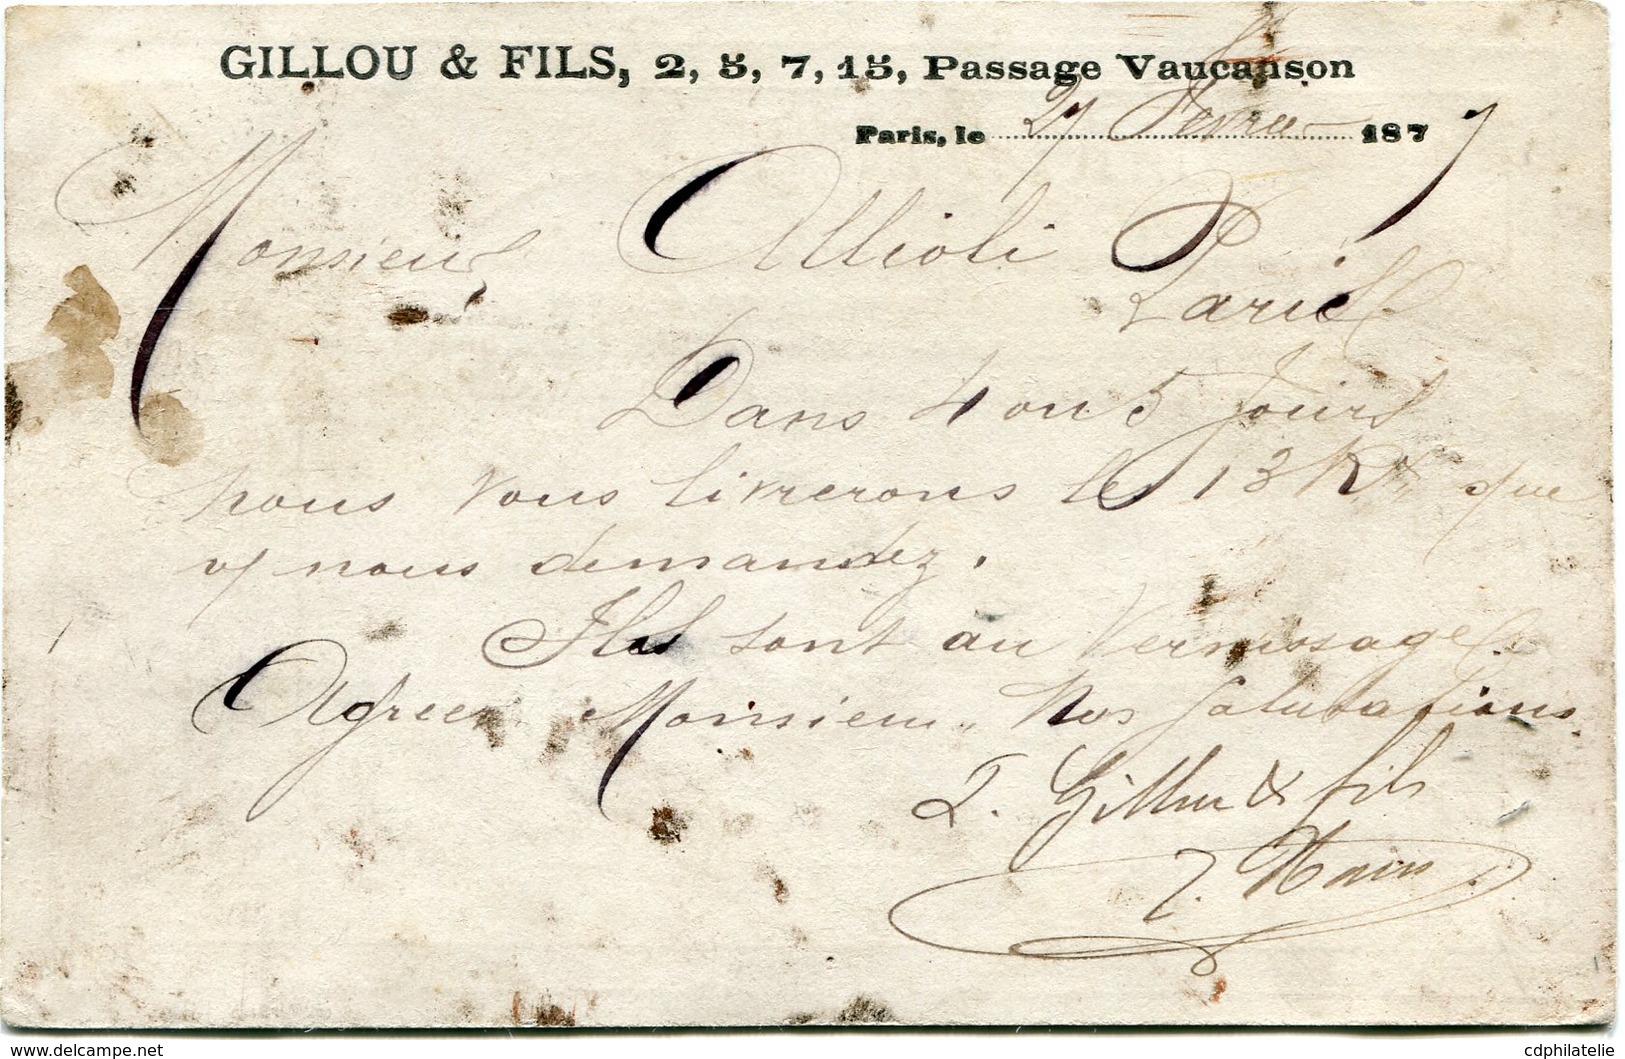 GILLOU & FILS, 2, 5, 7, 15, Passage Vaucanson
Paris, le 27 Février 1877
Monsieur Allioli
Paris
Dans 4 ou 5 jours
nous vous livrerons le 13 Kx que
v/ nous demandez.
Ils sont au Vernissage
Agreer Monsieur, Nos Salutations
Gillou & fils
www.delcampe.net
cdphilatelie